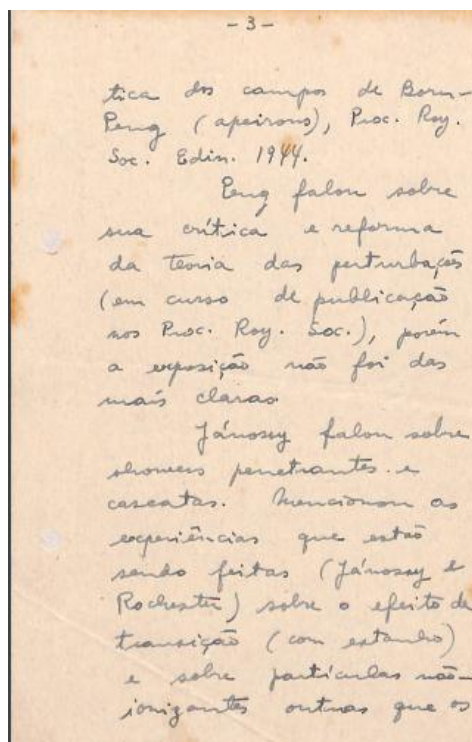 - 3 -
tica dos campos de Born-
Peng (apeirons), Proc. Roy.
Soc. Edin. 1944.
Peng falou sobre
sua crítica e reforma
da teoria das perturbações
(em curso de publicação
nos Proc. Roy. Soc.), porém
a exposição não foi das
mais claras.
Jánossy falou sobre
showers penetrantes e
cascatas. Mencionou as
experiências que estão
sendo feitas (Jánossy e
Rochester) sobre o efeito de
transição (com estanho)
e sobre partículas não-
ionizantes outras que os